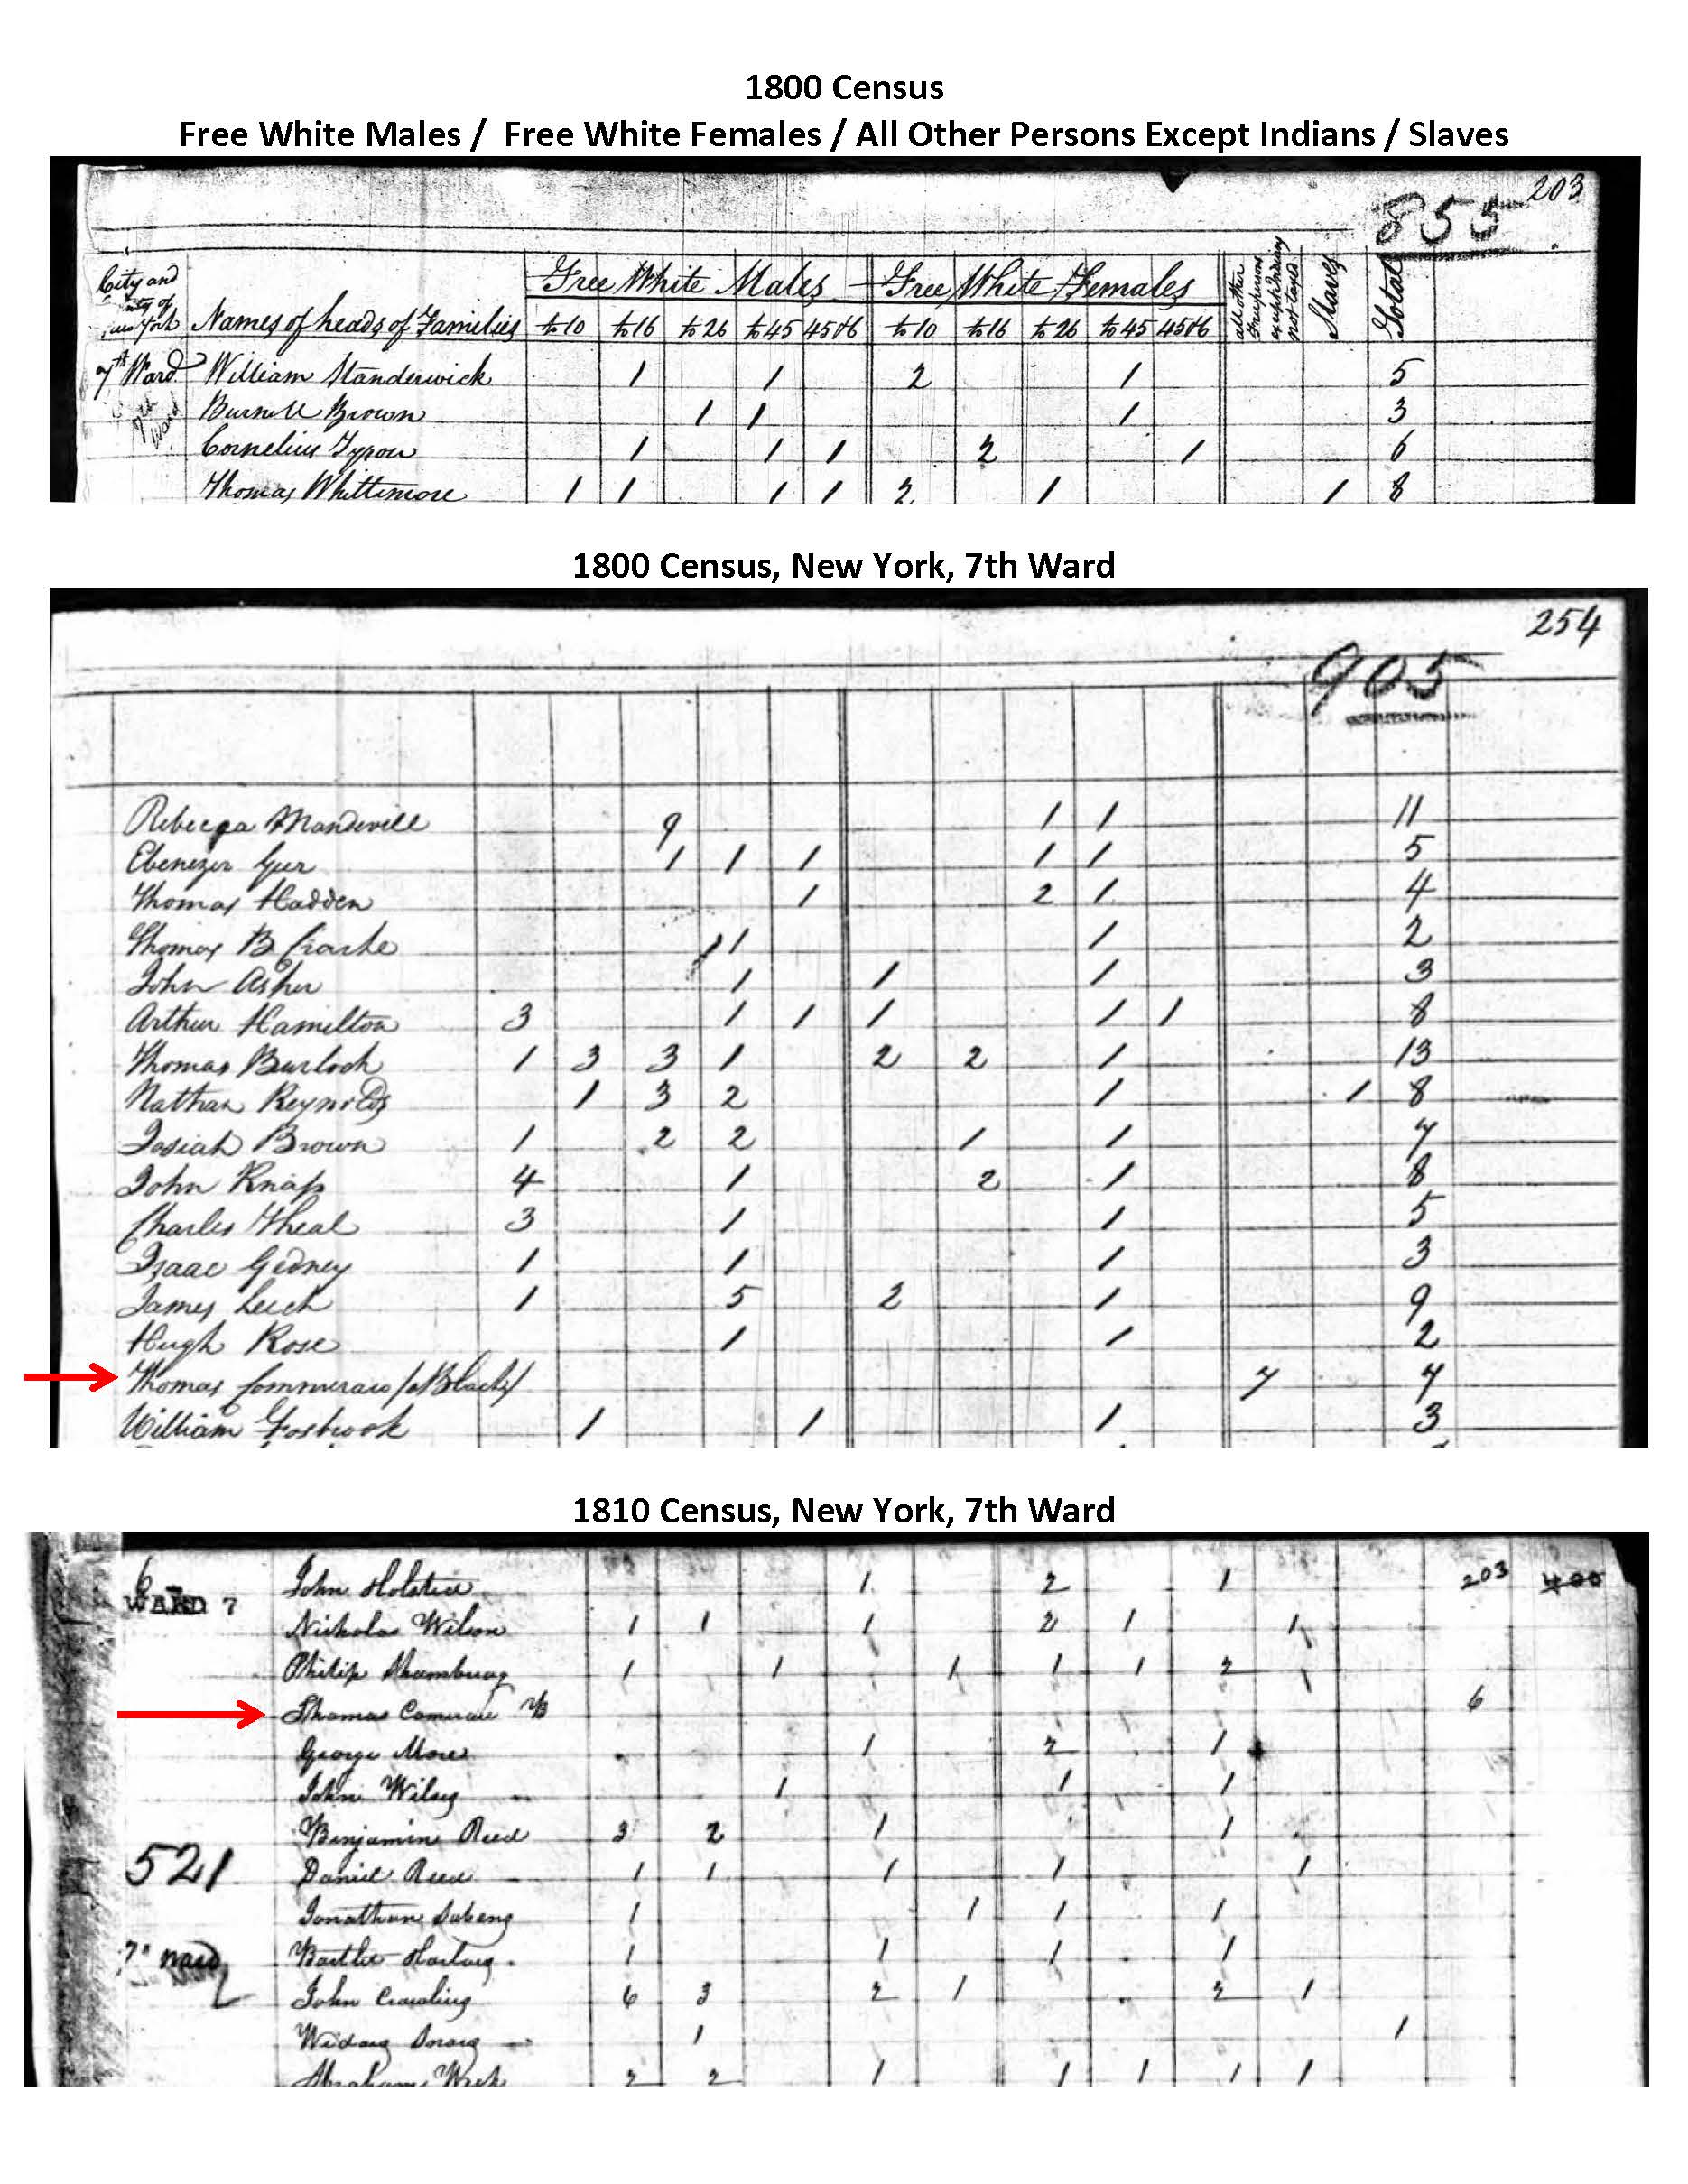 1800 Census
Free White Males / Free White Females / All Other Persons Except Indians / Slaves
203
855
City and
Free White Males Free White Females all other Free persons except Indians not taxed Slaves Total
Names of heads of Families to 10 to 16 to 26 to 45 45 &c to 10 to 16 to 26 to 45 45 &c
7th Ward William Standerwick 1 1 2 1 5
Brown 1 1 1 3
Cornelius 1 1 1 2 1 6
Thomas Whittimore 1 1 1 1 2 1 1 8
1800 Census, New York, 7th Ward
254
905
Rebecca Mandevill 9 1 1 11
Ebenezer 1 1 1 1 1 5
Thomas Hadden 1 2 1 4
Thomas B 1 1 2
John Asher 1 1 1 3
Arthur Hamilton 3 1 1 1 1 1 8
Thomas Burlock 1 3 3 1 2 2 1 13
Nathan Reynolds 1 3 2 1 1 8
Josiah Brown 1 2 2 1 1 7
John Knap 4 1 2 1 8
Charles Theal 3 1 1 5
Isaac Gedney 1 1 1 3
James Leech 1 5 2 1 9
Hugh Rose 1 1 2
Thomas Commeraw /a Black/ 7 7
William Fosbrook 1 1 1 3
1810 Census, New York, 7th Ward
6 John 1 2 1 203 400
WARD 7
Nicholas Wilson 1 1 1 2 1 1
Philip 1 1 1 1 1 2
Thomas B 6
George More 1 2 1
John 1 1 1
Benjamin Reed 3 2 1 1
521 Daniel Reed 1 1 1 1 1
Jonathan 1 1 1 1
7th Ward 1 1 1 1
John 6 3 2 1 2 1
1 1
Abraham 2 2 1 1 1 1 1